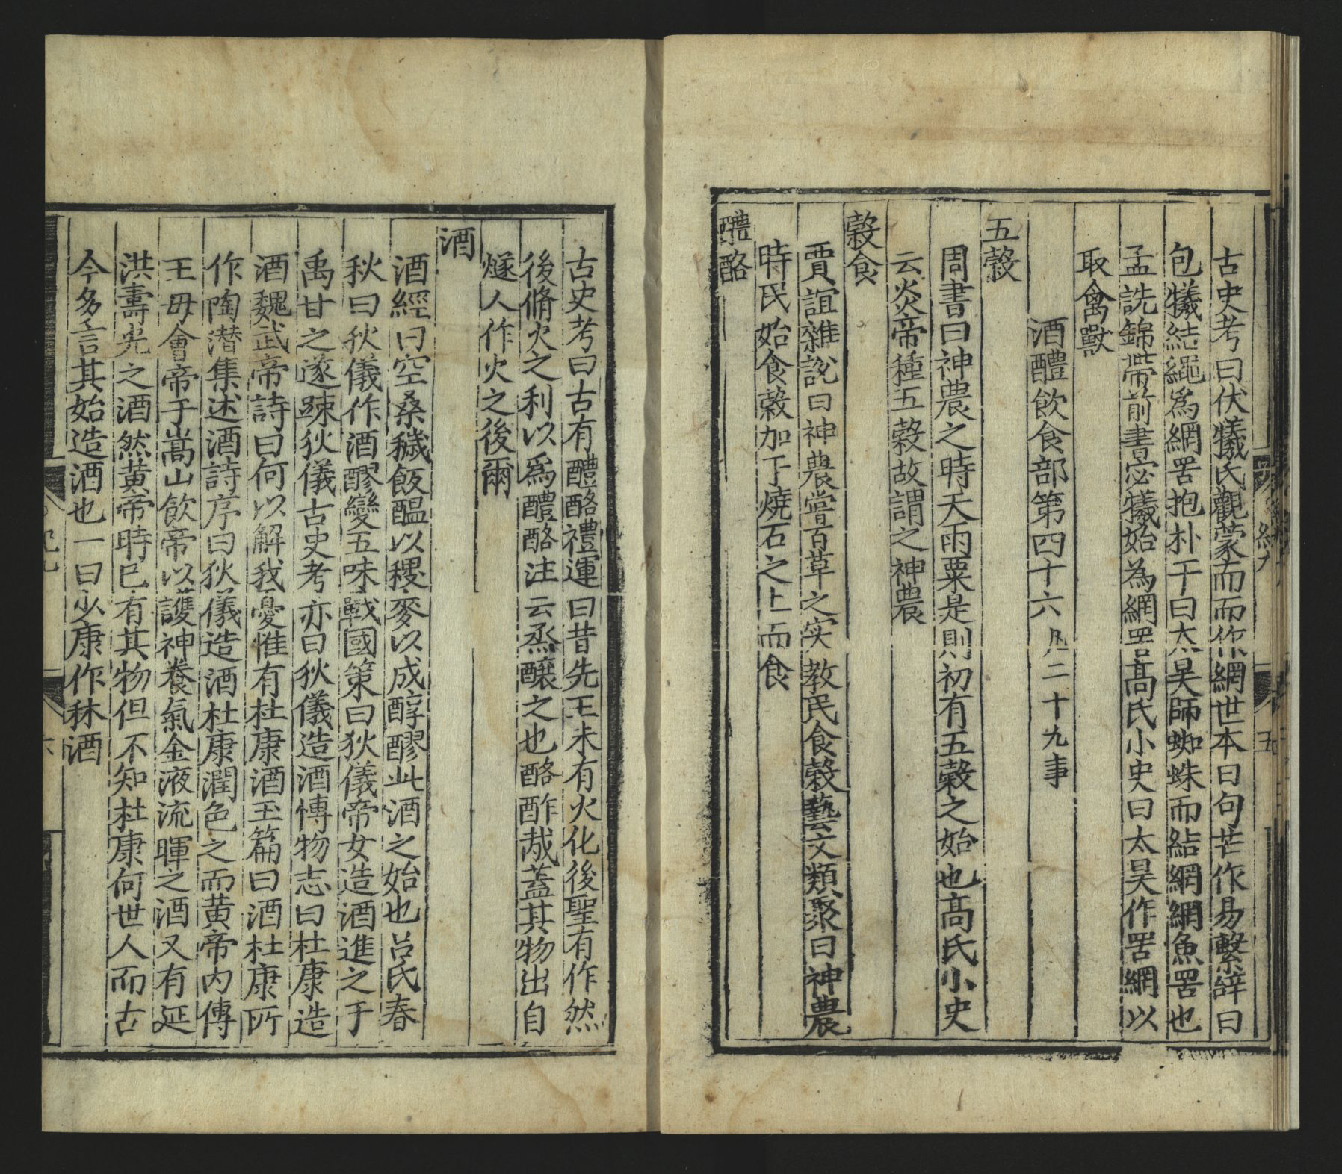 古史考曰伏犧氏觀蒙而而作網世本曰句芒作易繫辭曰
包犧結繩爲網罟抱朴子曰太昊師蜘蛛而結網網魚罟也
孟詵錦帶前書宓犧始為網罟高氏小史曰太昊作罟網以
取禽獸
酒醴飲食部第四十六凡二十九事
五穀
周書曰神農之時天雨粟是則初有五穀之始也高氏小史
云炎帝種五穀故謂之神農
穀食
賈誼雜說曰神農嘗百草之实教民食穀藝文類聚曰神農
時民始食穀加于燒石之上而食
醴酪
古史考曰古有醴酪禮運曰昔先王未有火化後聖有作然
後脩火之利以爲醴酪注云烝釀之也酪酢胾蓋其物出自
燧人作火之後爾
酒
酒經曰空桑穢飯醖以稷麥以成醇醪此酒之始也呂氏春
秋曰狄儀作酒醪變五味戰國策曰狄儀帝女造酒進之于
禹甘之遂踈狄儀古史考亦曰狄儀造酒博物志曰杜康造
酒魏武帝詩曰何以解我憂惟有杜康酒玉篇曰酒杜康所
作陶潜集述酒詩序曰狄儀造酒杜康潤色之而黄帝内傳
王母會帝于嵩山飲帝以護神養氣金液流暉之酒又有延
洪壽光之酒然黄帝時已有其物但不知杜康何世人而古
今多言其始造酒也一曰少康作秫酒